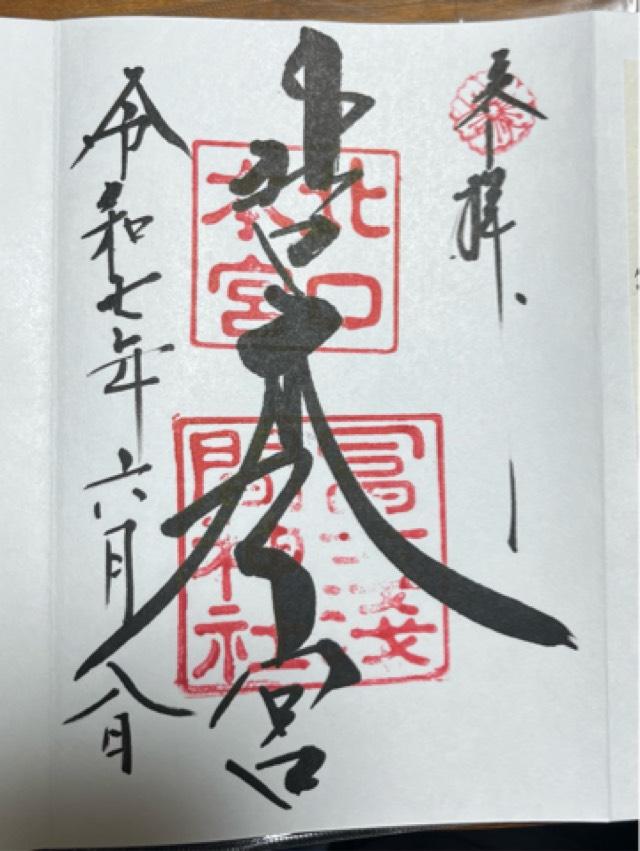 奉拝
北口
本宮
冨士浅
間神社
宮
令和七年六月八日